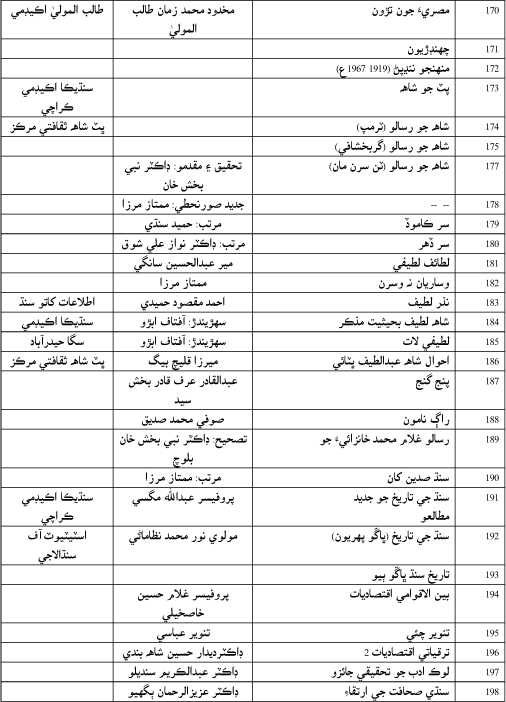 170 مصريءَ جون تڙون مخدود محمد زمان طالب المولىٰ طالب المولىٰ اڪيڊمي
171 چهنڊڙيون
172 منهنجو ننڍپڻ (1919 1967ع)
173 پٽ جو شاھ سنڌيڪا اڪيڊمي ڪراچي
174 شاھ جو رسالو (ٽرمپ) ڀٽ شاھ ثقافتي مرڪز
175 شاھ جو رسالو (گربخشاڻي)
177 شاھ جو رسالو (ٽن سرن مان) تحقيق ۽ مقدمو: ڊاڪٽر نبي بخش خان
178 -- -- جديد صورتخطي: ممتاز مرزا
179 سر ڪاموڏ مرتب: حميد سنڌي
180 سر ڏھر مرتب: ڊاڪٽر نواز علي شوق
181 لطائف لطيفي مير عبدالحسين سانگي
182 وساريان نہ وسرن ممتاز مرزا
183 نذر لطيف احمد مقصود حميدي اطلاعات کاتو سنڌ
184 شاھ لطيف بحيثيت مذڪر سهڙيندڙ: آفتاب ابڙو سنڌيڪا اڪيڊمي
185 لطيفي لات سهڙيندڙ: آفتاب ابڙو سگا حيدرآباد
186 احوال شاھ عبدالطيف ڀٽائي ميرزا قليچ بيگ ڀٽ شاھ ثقافتي مرڪز
187 پنج گنج عبدالقادر عرف قادر بخش سيد
188 راڳ نامون صوفي محمد صديق
189 رسالو غلام محمد خانزائيءَ جو تصحيح: ڊاڪٽر نبي بخش خان بلوچ
190 سنڌ صدين کان مرتب: ممتاز مرزا
191 سنڌ جي تاريخ جو جديد مطالعو پروفيسر عبدالله مگسي سنڌيڪا اڪيڊمي ڪراچي
192 سنڌ جي تاريخ (ڀاڱو پهريون) مولوي نور محمد نظاماڻي اسٽيٽيوٽ آف سنڌالاجي
193 تاريخ سنڌ ڀاڱو ٻيو
194 بين الاقوامي اقتصاديات پروفيسر غلام حسين خاصخيلي
195 تنوير چئي تنوير عباسي
196 ترقياتي اقتصاديات 2 ڊاڪٽرديدار حسين شاھ بندي
197 لوڪ ادب جو تحقيقي جائزو ڊاڪٽر عبدالڪريم سنديلو
198 سنڌي صحافت جي ارتقاءِ ڊاڪٽر عزيزالرحمان ٻگهيو